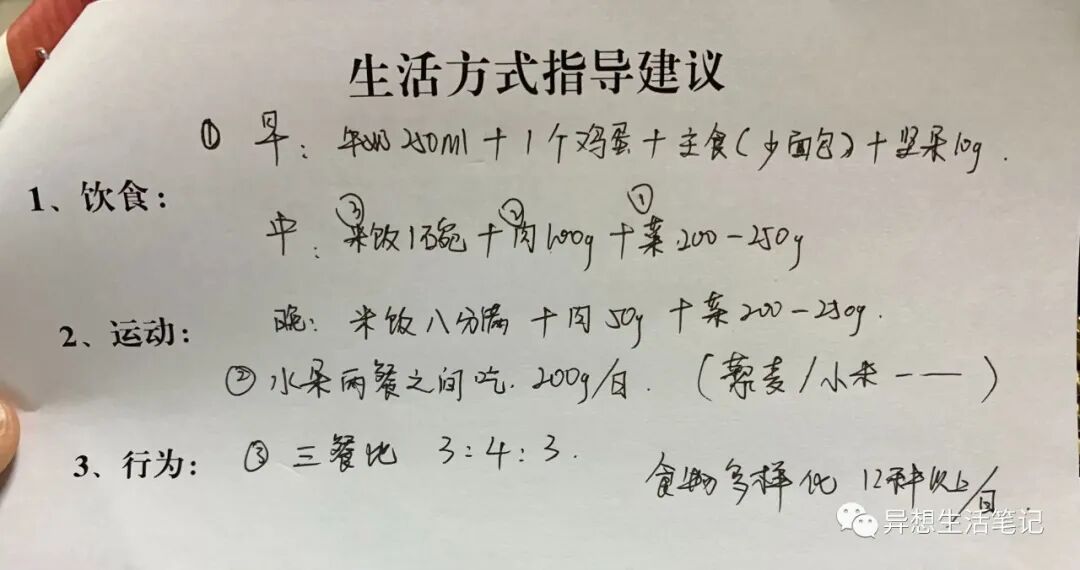 生活方式指导建议
① 早: 牛奶250ml + 1个鸡蛋 + 主食(少面包) + 坚果10g.
1、饮食:
③ ② ①
中: 米饭1碗 + 肉100g + 菜200-250g
2、运动:
晚: 米饭八分满 + 肉50g + 菜200-250g.
② 水果两餐之间吃. 200g/日. (藜麦/小米——)
3、行为:
③ 三餐比 3:4:3.
食物多样化 12种以上/日.
异想生活笔记